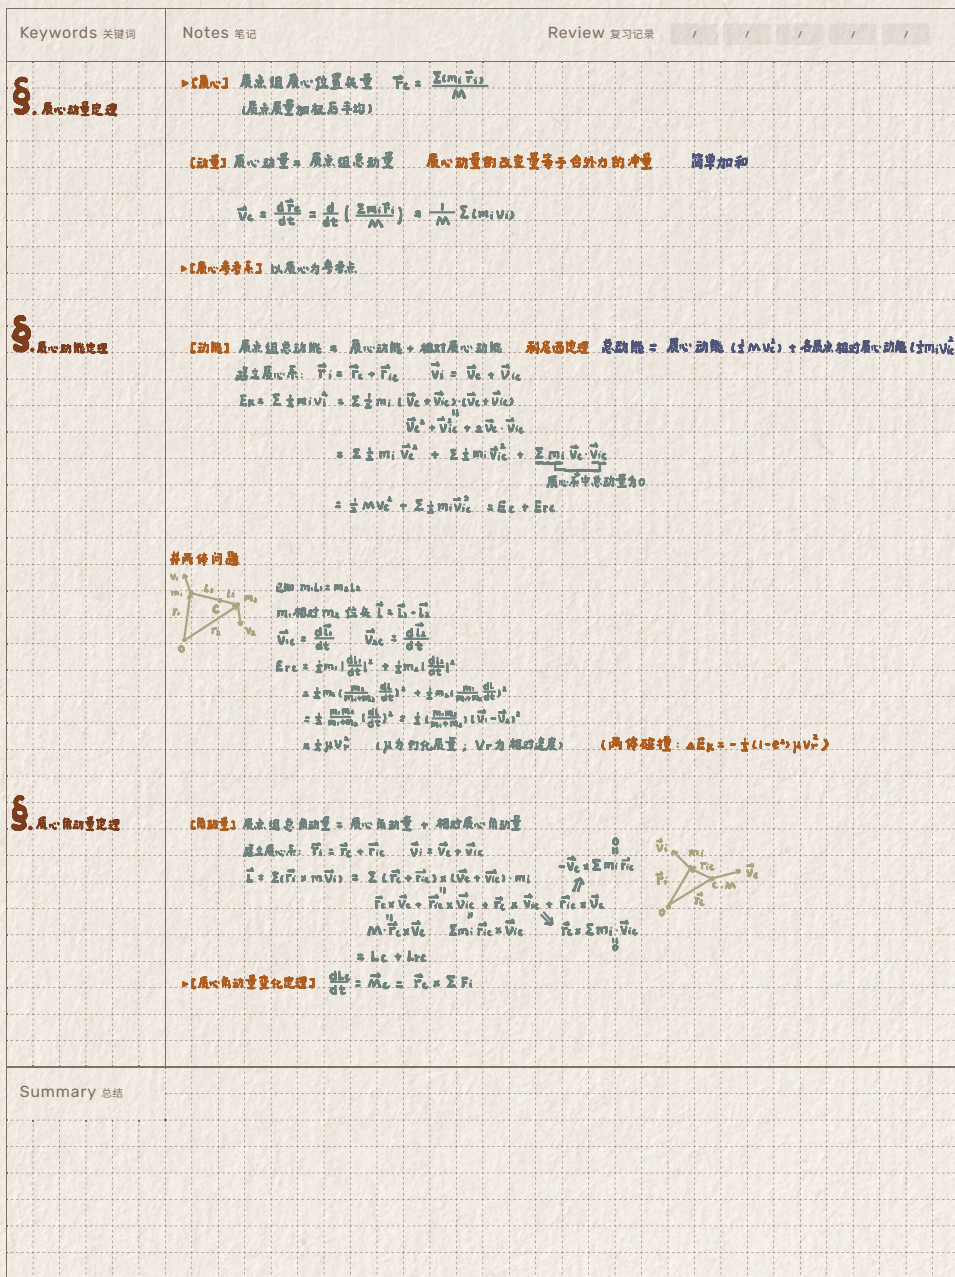 Keywords 关键词 Notes 笔记 Review 复习记录 / / / / /
§. 质心动量定理
▸[质心] 质点组质心位置矢量 r⃗c = Σ(mi r⃗i)/M
(质点质量加权后平均)
[动量] 质心动量 = 质点组总动量 质心动量的改变量等于合外力的冲量 简单加和
v⃗c = dr⃗c/dt = d/dt (Σmi r⃗i/M) = 1/M Σ(mivi)
▸[质心参考系] 以质心为参考点
§. 质心动能定理
[动能] 质点组总动能 = 质心动能 + 相对质心动能 柯尼西定理 总动能 = 质心动能 (½Mvc²) + 各质点相对质心动能 (½mivic²
建立质心系: r⃗i = r⃗c + r⃗ic v⃗i = v⃗c + v⃗ic
Ek = Σ½mivi² = Σ½mi (v⃗c + v⃗ic)·(v⃗c + v⃗ic)
"
v⃗c² + v⃗ic² + 2v⃗c·v⃗ic
= Σ½mi v⃗c² + Σ½mi v⃗ic² + Σmi v⃗c·v⃗ic
质心系中总动量为0
= ½Mvc² + Σ½mi v⃗ic² = Ec + Erc
#两体问题
v1 m1 L1 L2 m2 r1 C r2 v2 O
已知 m1L1 = m2L2
m1相对m2 位矢 L⃗ = L⃗1 - L⃗2
v⃗1c = dL⃗1/dt v⃗2c = dL⃗2/dt
Erc = ½m1|dL1/dt|² + ½m2|dL2/dt|²
= ½m1(m2/(m1+m2) dL/dt)² + ½m2(m1/(m1+m2) dL/dt)²
= ½ m1m2/(m1+m2) (dL/dt)² = ½(m1m2/(m1+m2))(v⃗1 - v⃗2)²
= ½μvr² (μ为约化质量, vr为相对速度) (两体碰撞: ΔEk = -½(1-e²)μvr²)
§. 质心角动量定理
[角动量] 质点组总角动量 = 质心角动量 + 相对质心角动量
建立质心系: r⃗i = r⃗c + r⃗ic v⃗i = v⃗c + v⃗ic
0
"
-v⃗c × Σmi r⃗ic
v⃗i mi r⃗ic r⃗i C.M v⃗c r⃗c O
L⃗ = Σ(r⃗i × mv⃗i) = Σ(r⃗c + r⃗ic) × (v⃗c + v⃗ic)·mi
⇑
r⃗c × v⃗c + r⃗ic × v⃗ic + r⃗c × v⃗ic + r⃗ic × v⃗c
" " ⇘
M·r⃗c × v⃗c Σmi r⃗ic × v⃗ic r⃗c × Σmi·v⃗ic
"
0
= Lc + Lrc
▸[质心角动量变化定理] dLc/dt = M⃗c = r⃗c × ΣFi
Summary 总结